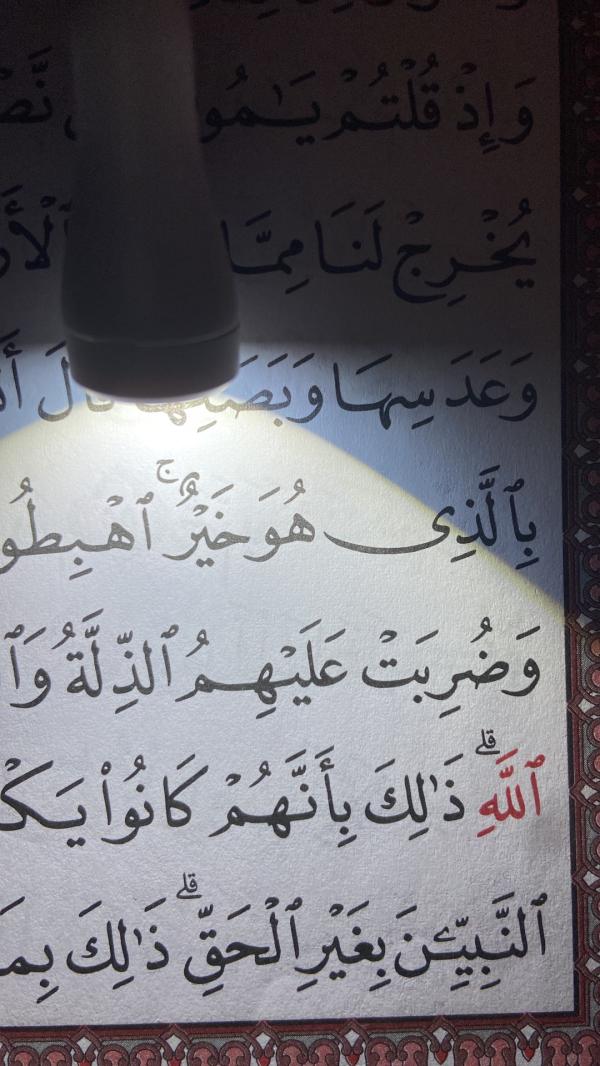 وَإِذْ قُلْتُمْ يَـٰمُو
يُخْرِجْ لَنَا مِمَّا
وَعَدَسِهَا وَبَصَلِهَا قَالَ
بِٱلَّذِى هُوَ خَيْرٌ ۚ ٱهْبِطُو
وَضُرِبَتْ عَلَيْهِمُ ٱلذِّلَّةُ وَٱ
ٱللَّهِ ۗ ذَٰلِكَ بِأَنَّهُمْ كَانُوا۟ يَكْ
ٱلنَّبِيِّـۧنَ بِغَيْرِ ٱلْحَقِّ ۗ ذَٰلِكَ بِمَ